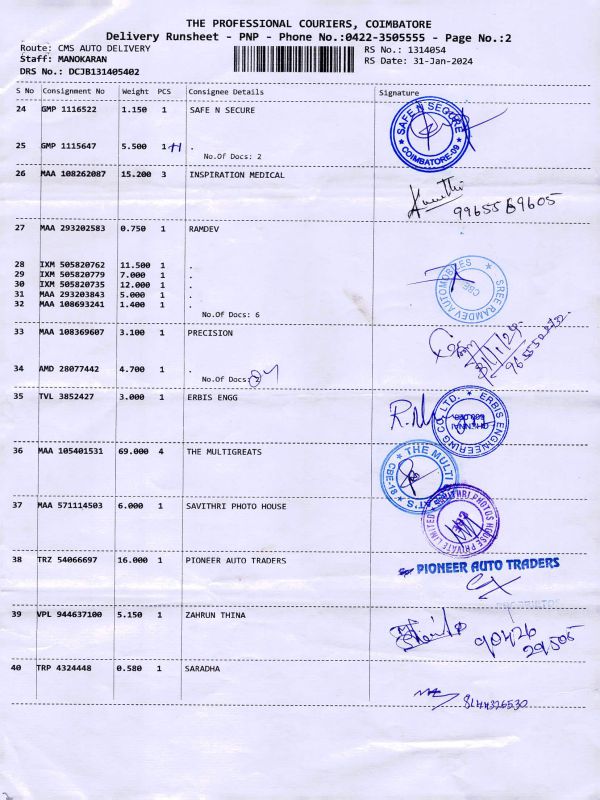 THE PROFESSIONAL COURIERS, COIMBATORE
Delivery Runsheet - PNP - Phone No.:0422-3505555 - Page No.:2
Route: CMS AUTO DELIVERY
RS No.: 1314054
Staff: MANOKARAN
RS Date: 31-Jan-2024
DRS No.: DCJB131405402
S No Consignment No Weight PCS Consignee Details Signature
24 GMP 1116522 1.150 1 SAFE N SECURE
SAFE N SECURE
COIMBATORE-09
25 GMP 1115647 5.500 1 .
No.Of Docs: 2
26 MAA 108262087 15.200 3 INSPIRATION MEDICAL
27 MAA 293202583 0.750 1 RAMDEV
28 IXM 505820762 11.500 1 .
29 IXM 505820779 7.000 1 .
30 IXM 505820735 12.000 1 .
31 MAA 293203843 5.000 1 .
32 MAA 108693241 1.400 1 .
No.Of Docs: 6
SREE RAMDEV AUTOMOBILES
CBE
33 MAA 108369607 3.100 1 PRECISION
34 AMD 28077442 4.700 1 .
No.Of Docs: 2
35 TVL 3852427 3.000 1 ERBIS ENGG
ERBIS ENGINEERING CO. LTD.
CHENNAI
36 MAA 105401531 69.000 4 THE MULTIGREATS
THE MULTI
CBE-18
37 MAA 571114503 6.000 1 SAVITHRI PHOTO HOUSE
SAVITHRI PHOTOS HOUSE PRIVATE LIMITED
38 TRZ 54066697 16.000 1 PIONEER AUTO TRADERS
PIONEER AUTO TRADERS
39 VPL 944637100 5.150 1 ZAHRUN THINA
90426
29505
40 TRP 4324448 0.580 1 SARADHA
8144326530